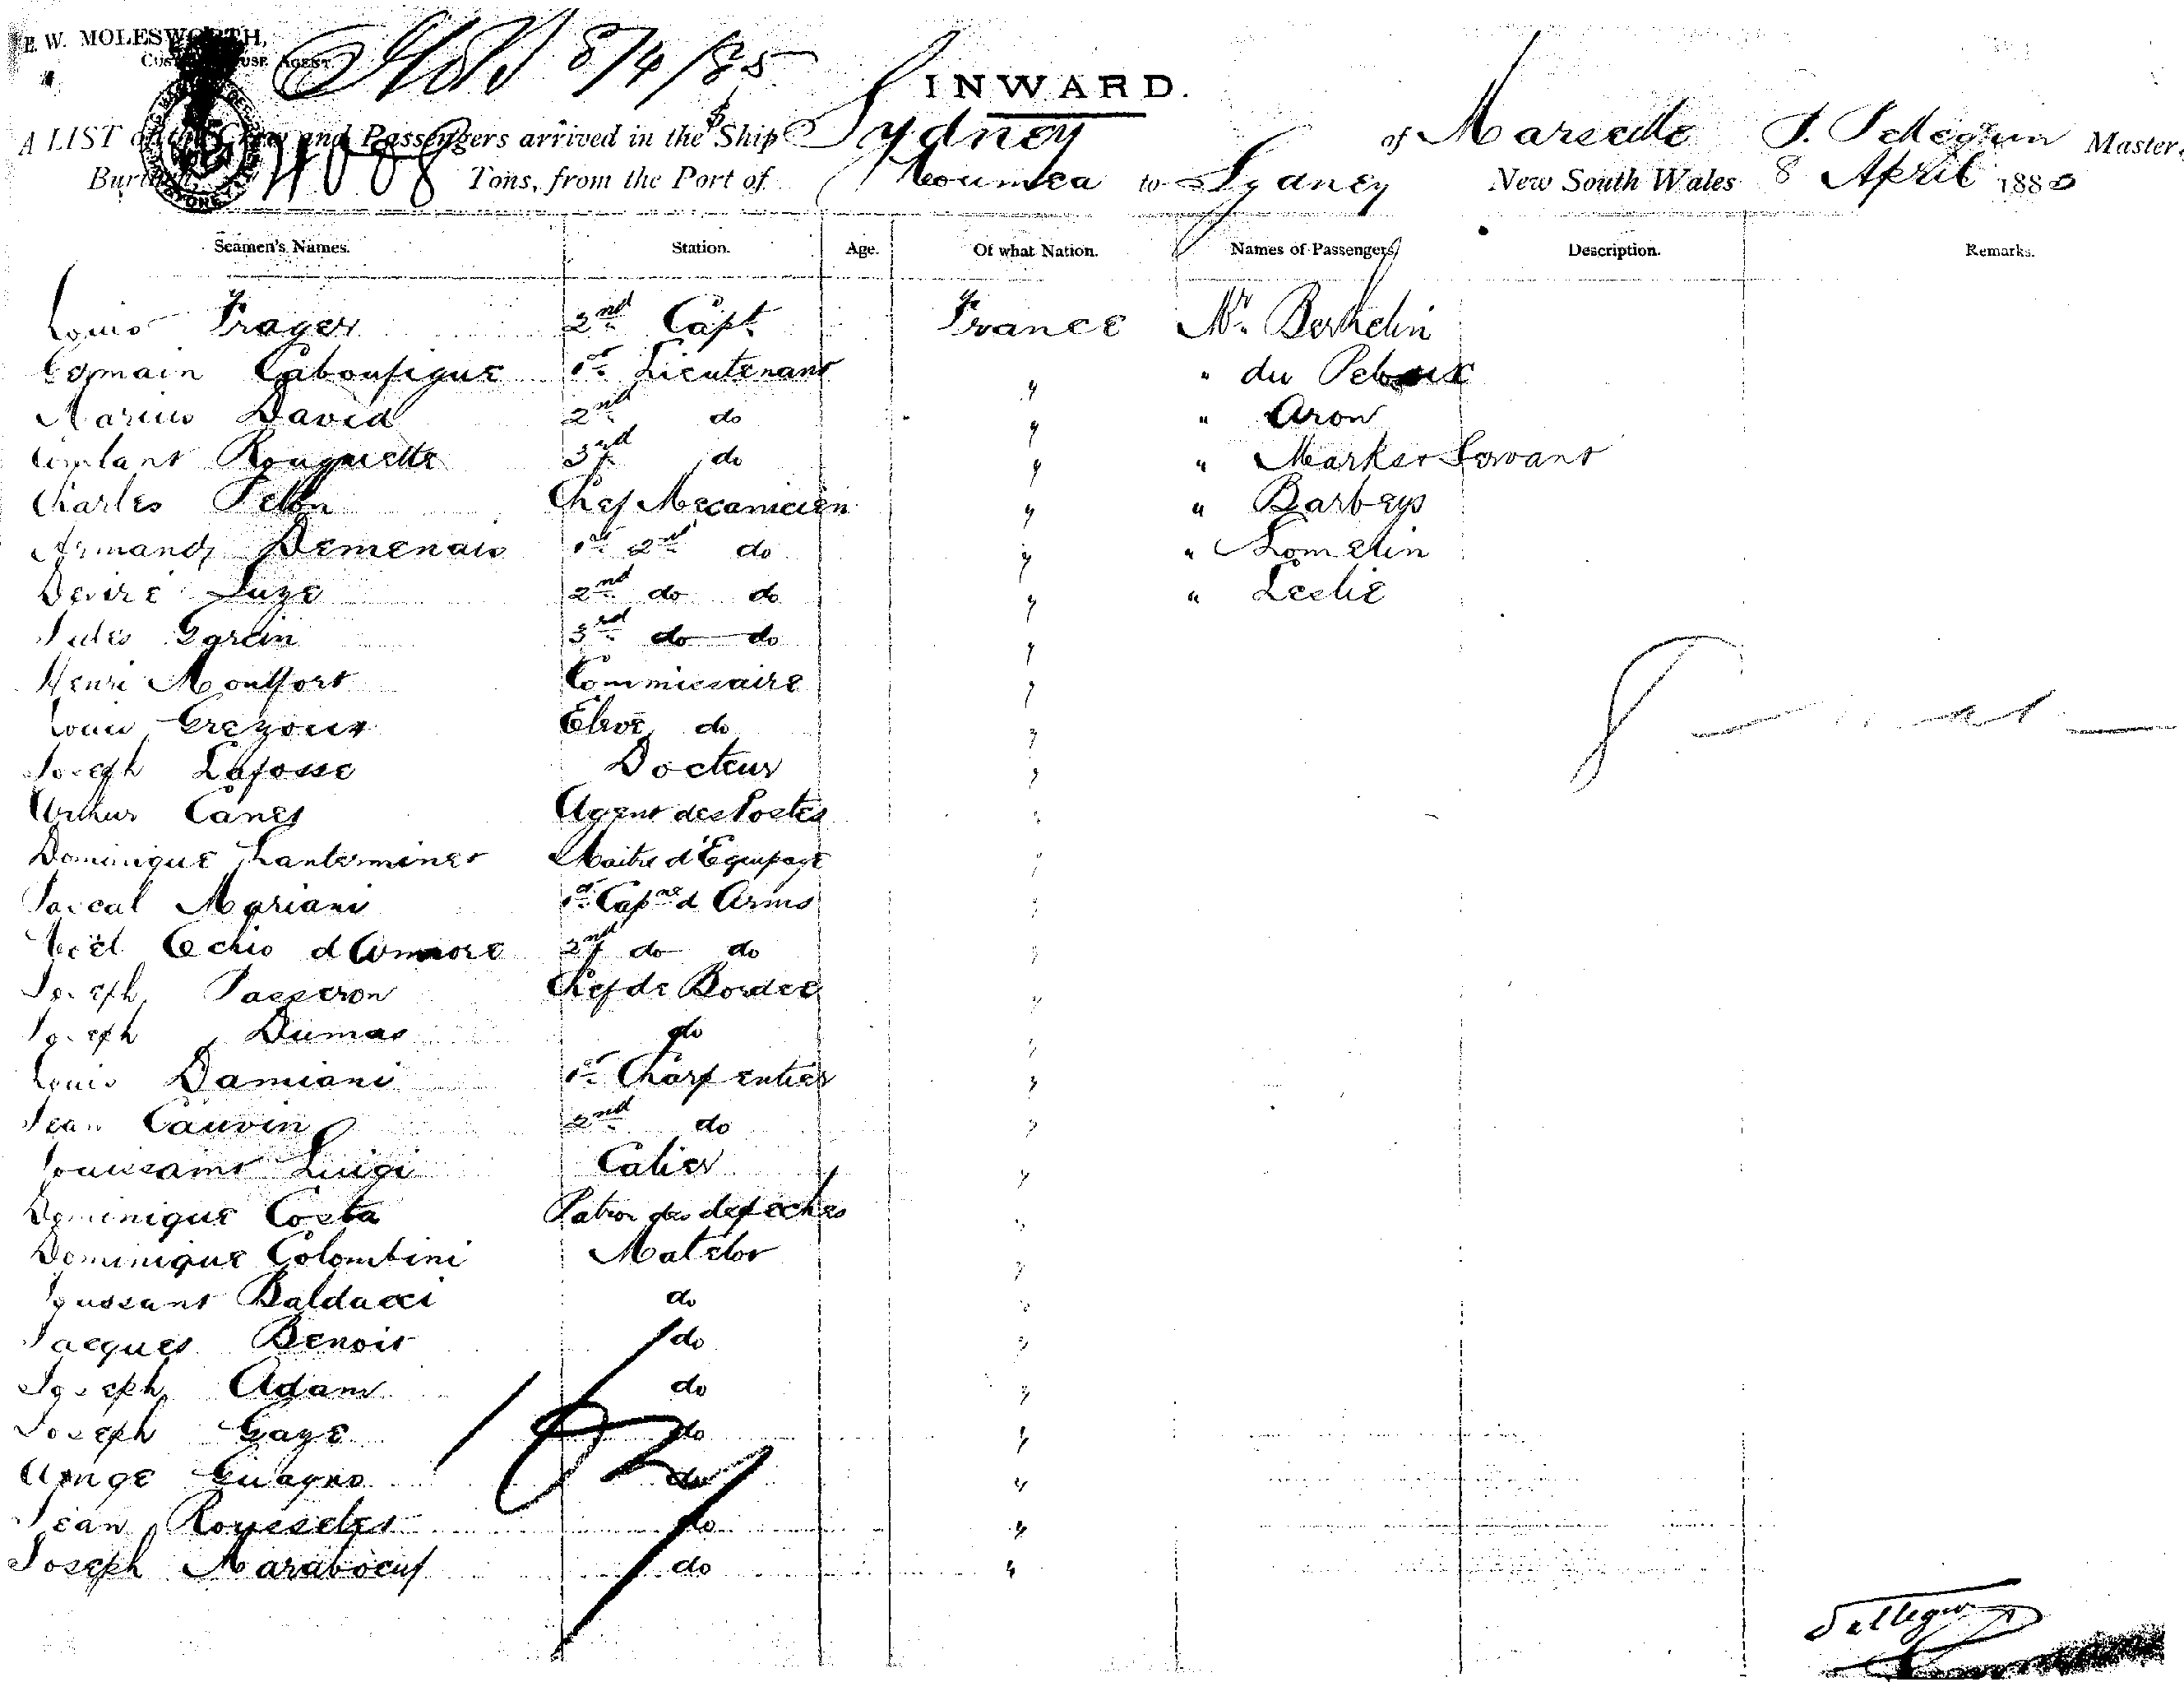 E. W. MOLESWORTH,
CUSTOM HOUSE AGENT.
8/4/85
INWARD.
A LIST of the Crew and Passengers arrived in the Ship Sydney of Marseille Master,
Burthen 4008 Tons, from the Port of Noumea to Sydney New South Wales 8 April 1885
Seamen's Names. Station. Age. Of what Nation. Names of Passengers Description. Remarks.
Louis Frager 2nd Capt. France Mr. Berthelin
Germain Caboufigue 1st Lieutenant " " du
Marius David 2nd do " " Aron
Rouquette 3rd do " " Marks & Servant
Charles Chef Mecanicien " " Barbeys
Armand Demenais 1st 2nd do " " Lomelin
Desiré Luze 2nd do do " " Leslie
Jules Garcin 3rd do do "
Henri Montfort Commissaire "
Louis Grezoux Elève do "
Joseph Lafosse Docteur "
Arthur Canes Agent des Postes "
Dominique Lanterminer Maitre d'Equipage "
Pascal Mariani 1st Capne d Arms "
Noël 2nd do do "
Joseph Passeron Chef de Bordee "
Joseph Dumas do "
Louis Damiani 1st Charpentier "
Jean Cauvin 2nd do "
Toussaint Luigi Calier "
Dominique Costa Patron des depeches "
Dominique Colombini Matelot "
Toussant Baldacci do "
Jacques Benoit do "
Joseph Adam do "
Joseph Gaze do "
Ange Guagno do "
Jean Rousselet do "
Joseph Maraboeuf do "